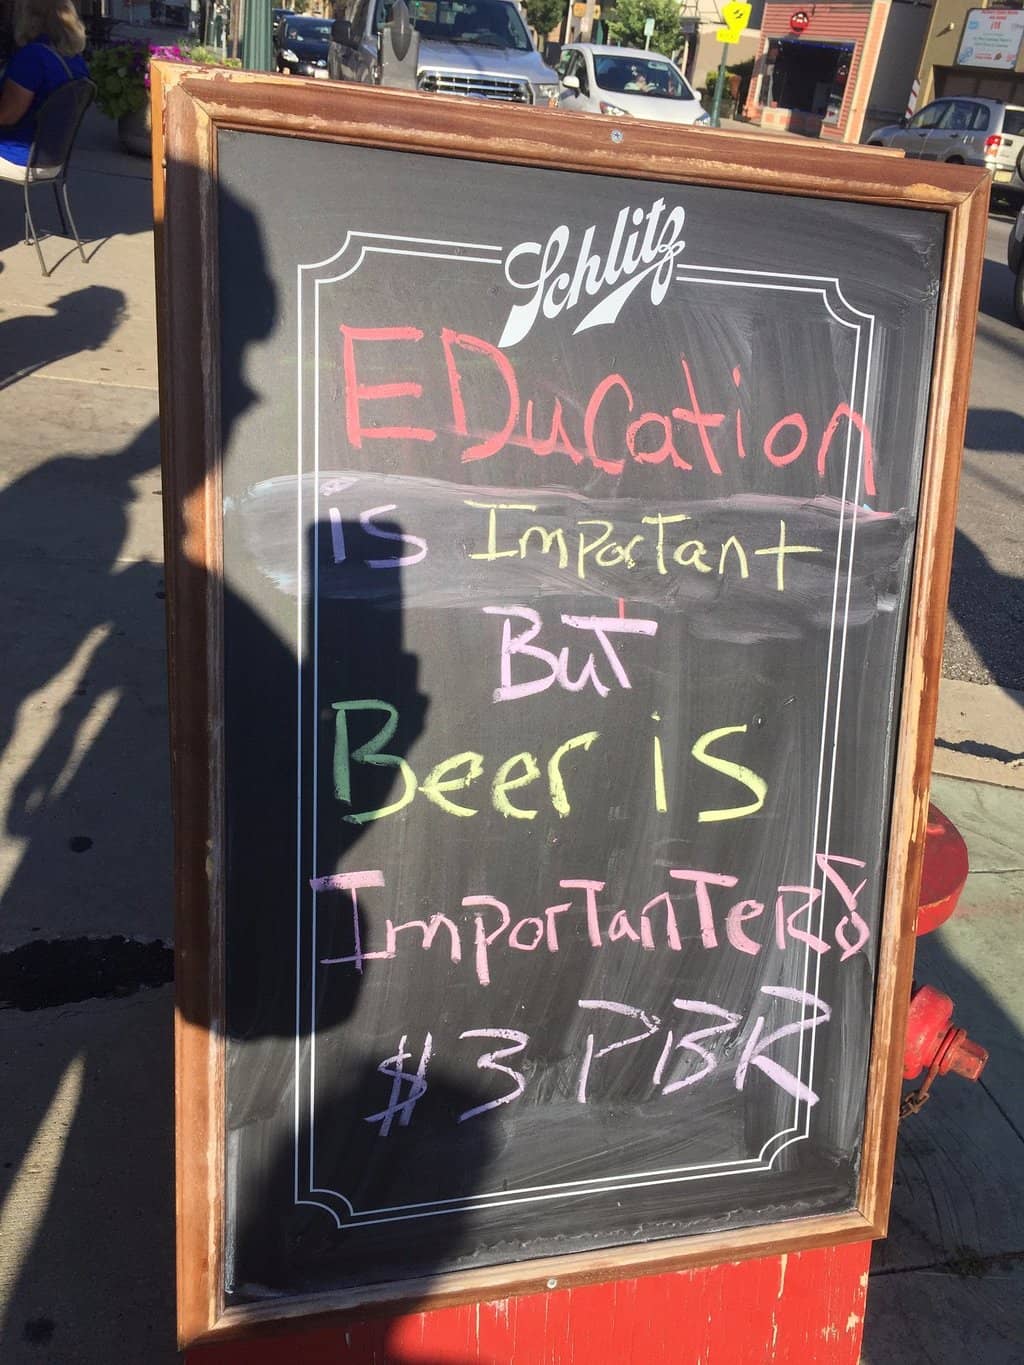 Schlitz
EDucation
is Important
But
Beer is
ImporTanTeR!
$3 PBR